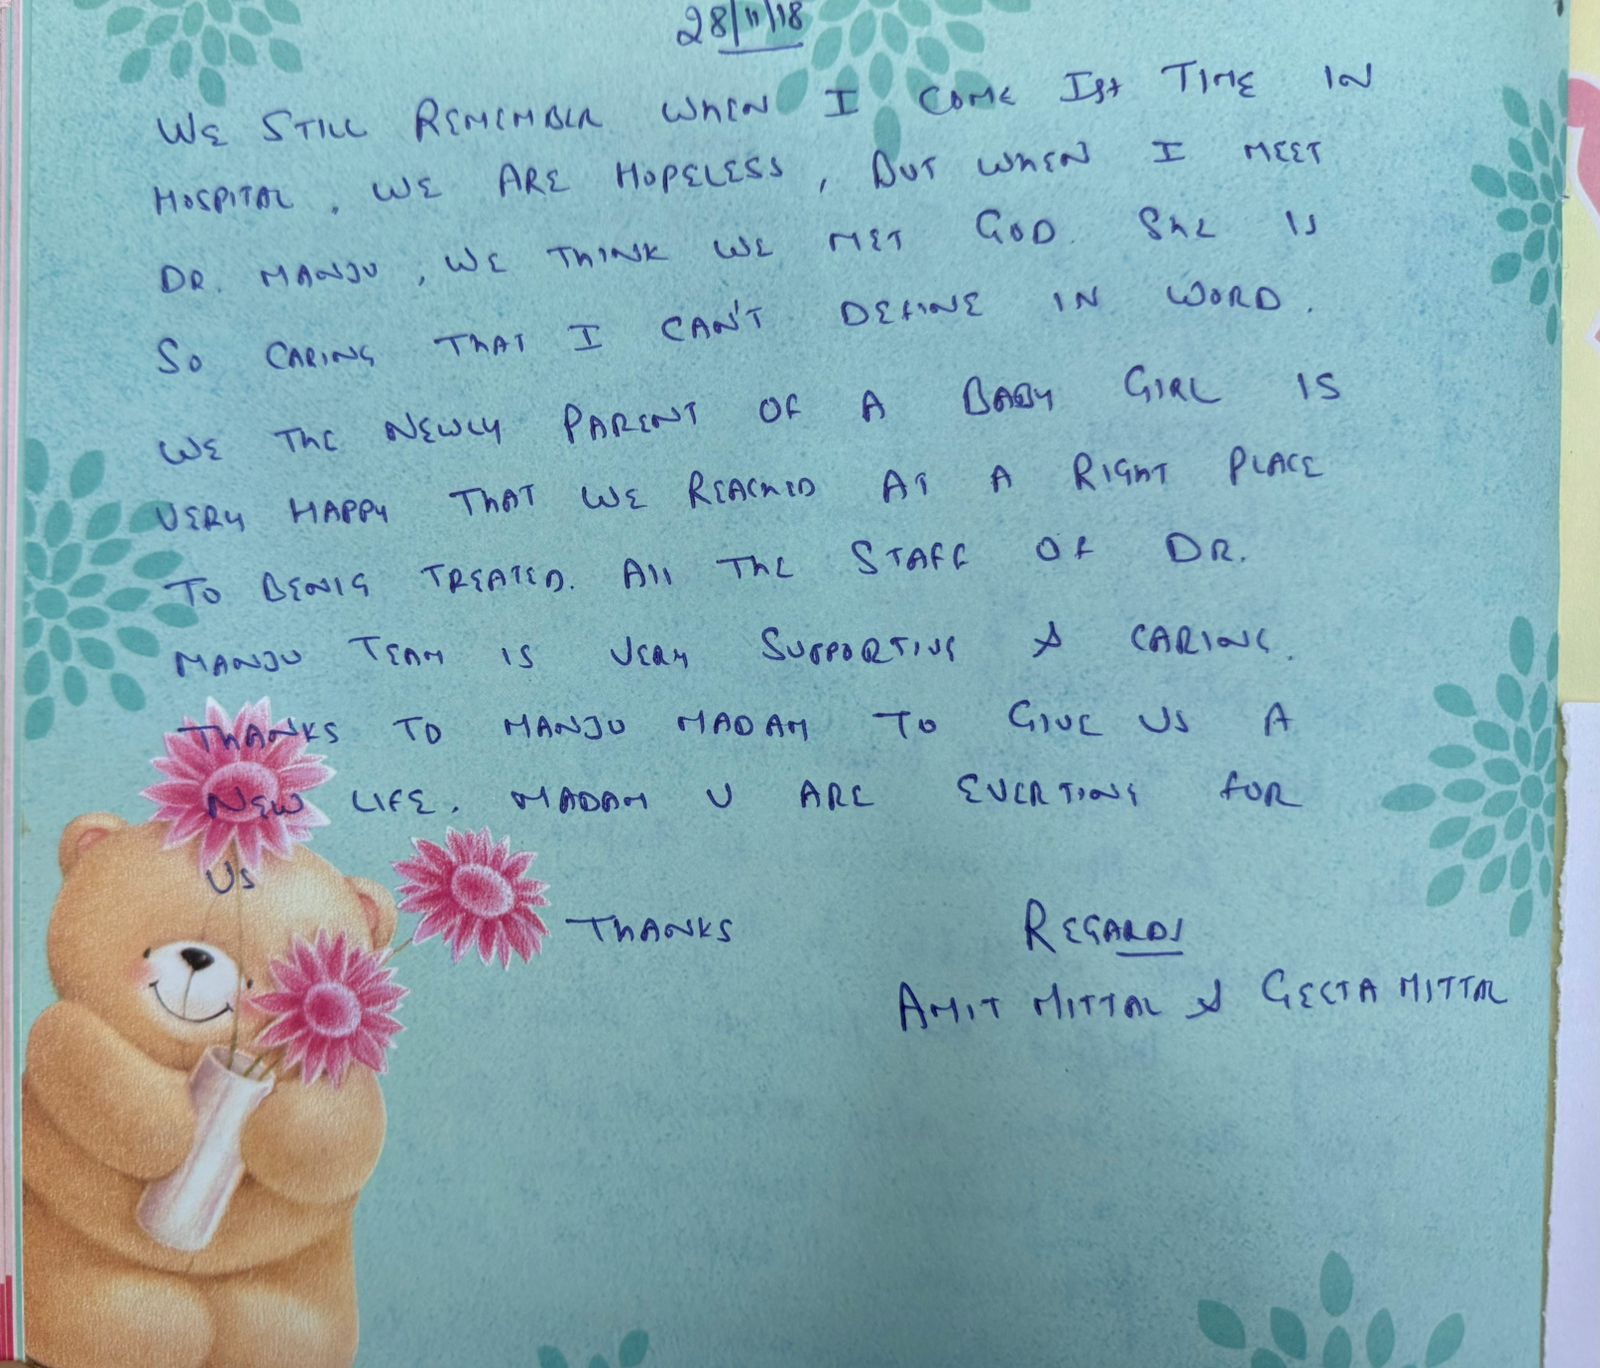 28/11/18
WE STILL REMEMBER WHEN I COME Ist TIME IN
HOSPITAL, WE ARE HOPELESS, BUT WHEN I MEET
DR. MANJU, WE THINK WE MET GOD. SHE IS
SO CARING THAT I CAN'T DEFINE IN WORD.
WE THE NEWLY PARENT OF A BABY GIRL IS
VERY HAPPY THAT WE REACHED AT A RIGHT PLACE
TO BENIG TREATED. All THE STAFF OF DR.
MANJU TEAM IS VERY SUPPORTIVE & CARING.
THANKS TO MANJU MADAM TO GIVE US A
NEW LIFE. MADAM U ARE EVERTING FOR
US
THANKS REGARDS
AMIT MITTAL & GEETA MITTAL